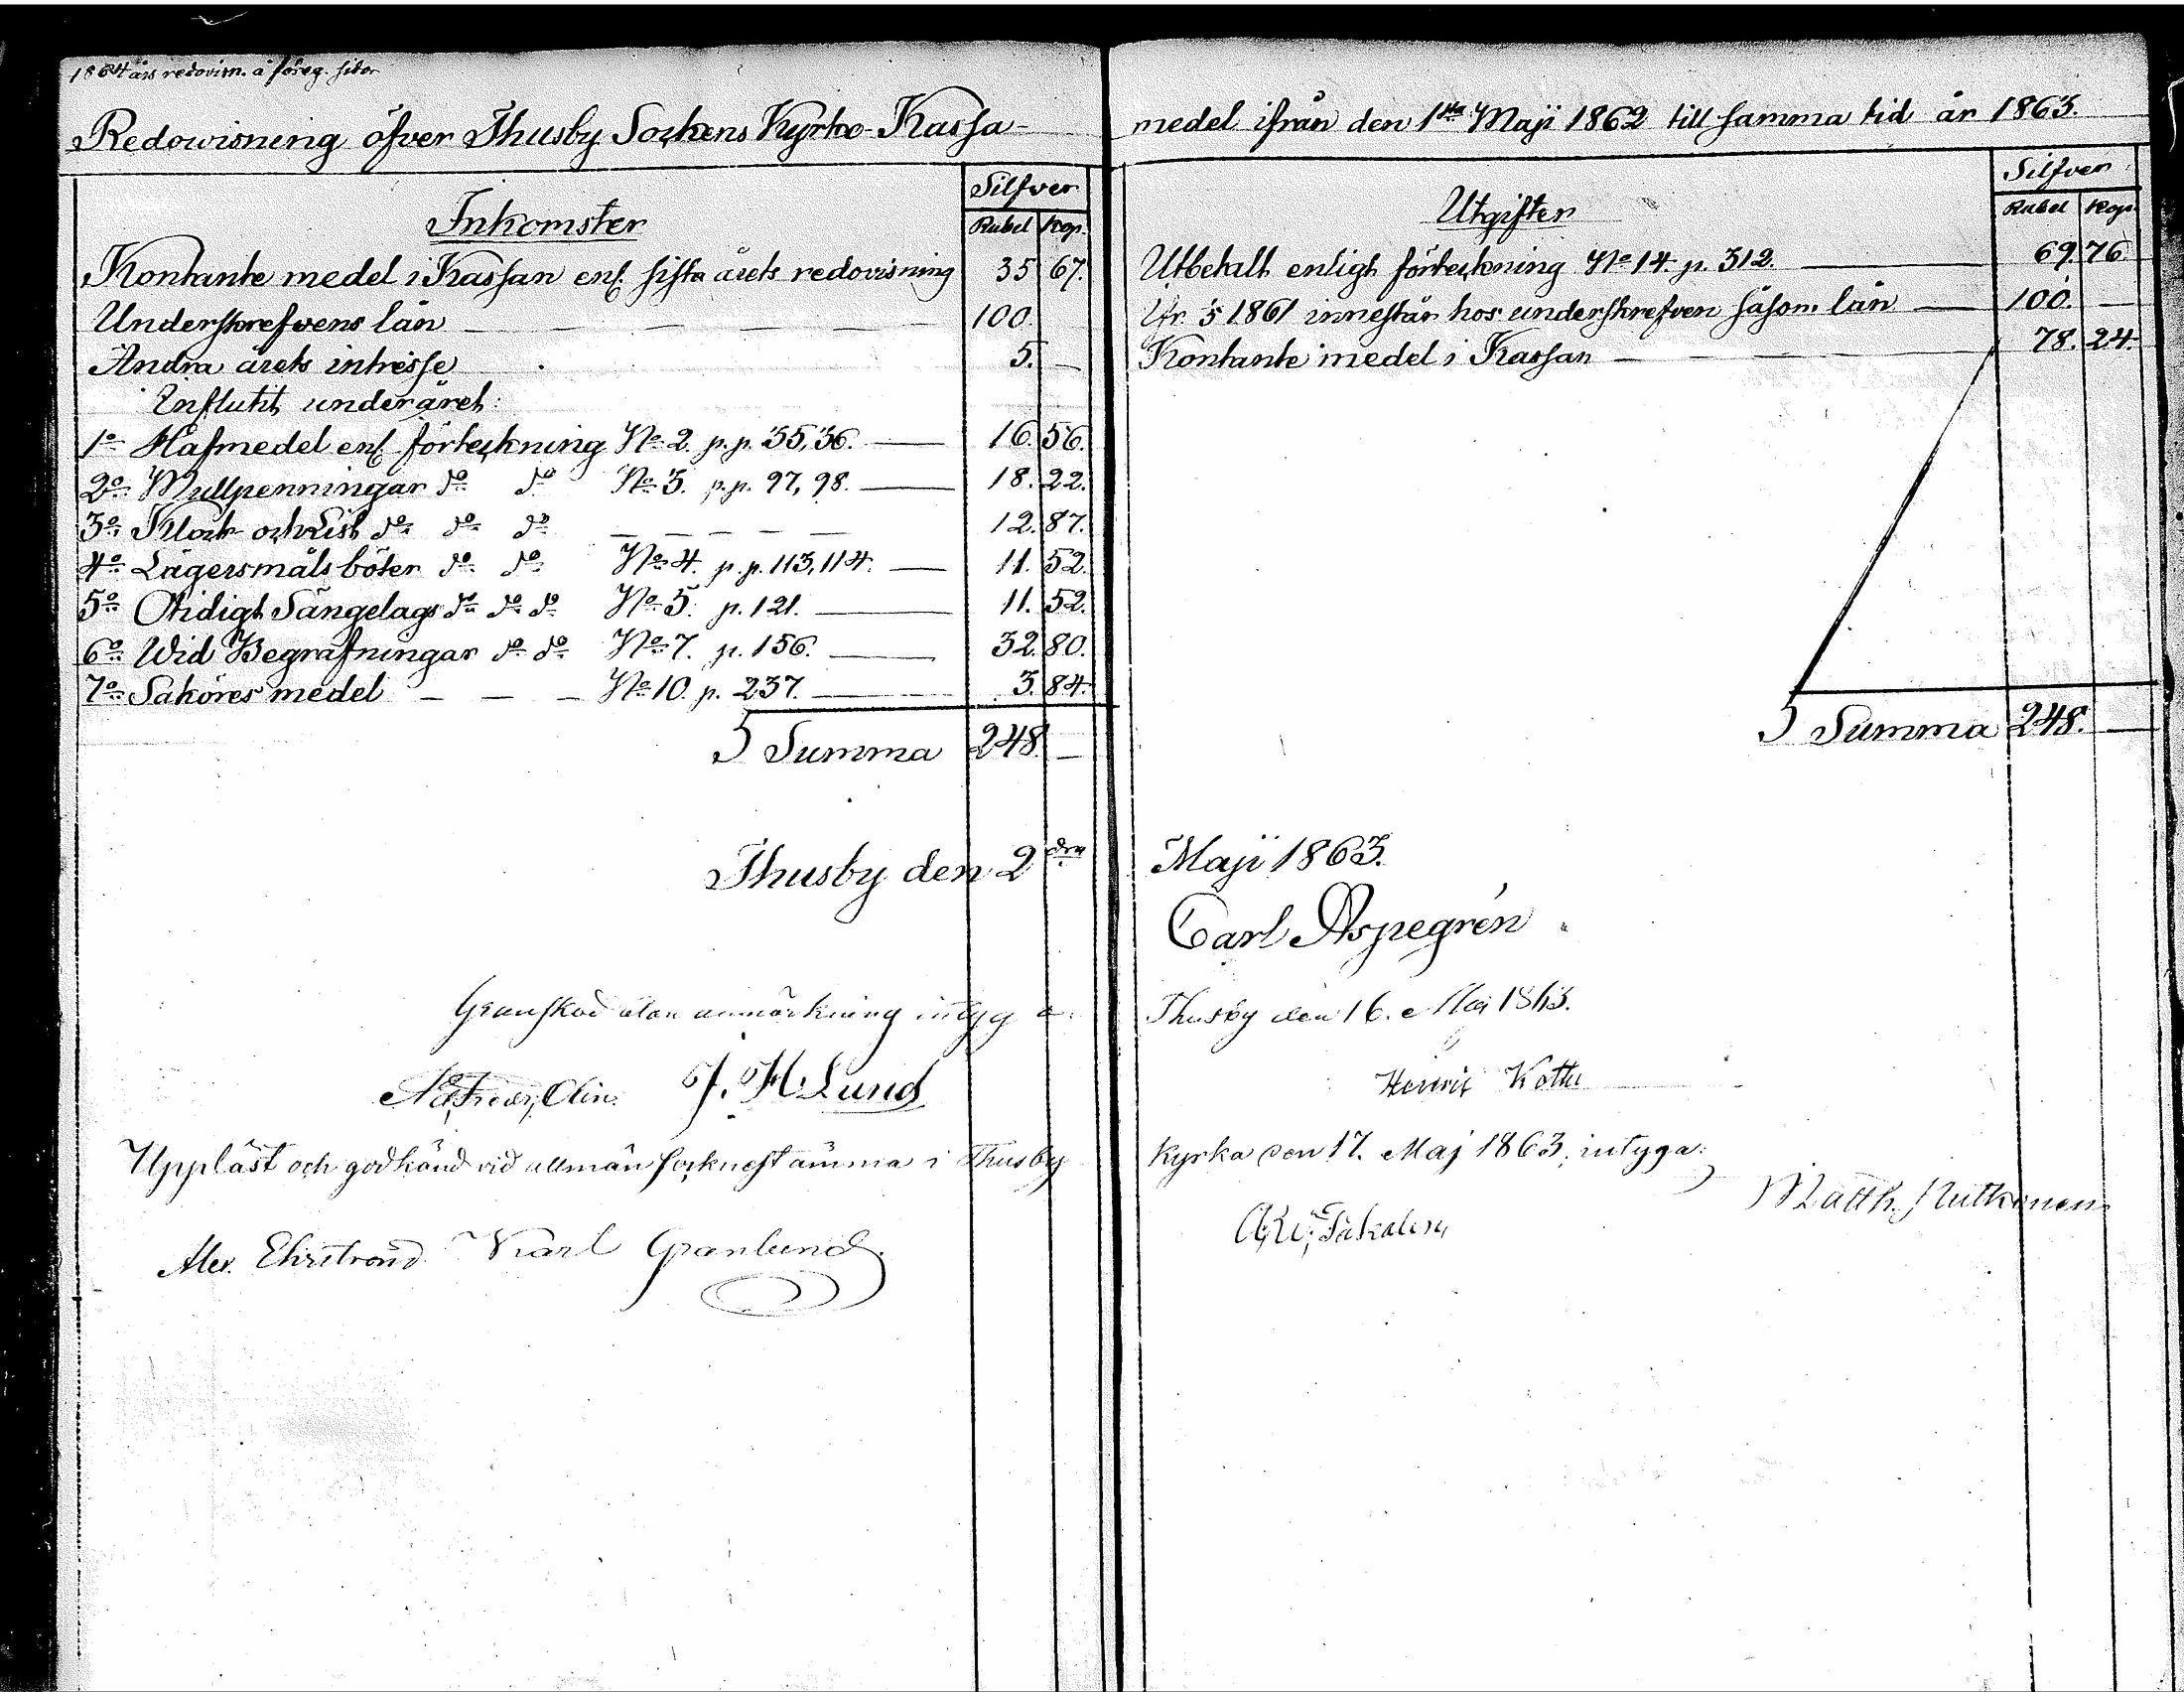 1864 års redovisn. å föreg. sidor
Redowisning öfver Thusby Sockens Kyrko-Kassa-
Silfver
Inkomster
Rubel Kop.
Kontante medel i Kassan enl. sista årets redovisning 35 67.
Underskrefvens lån — — — — — 100.
Andra årets intresse 5. —
Influtit under året:
1o Håfmedel enl. förteckning No 2. p.p. 35, 36. — 16. 56.
2o Mullpenningar do do No 3. p.p. 97, 98. — 18. 22.
3o Klock och List do do do — — — — — 12. 87.
4o Lägersmåls böter do do No 4. p.p. 113, 114. — 11. 52.
5o Otidigt Sängelags do do do No 5. p. 121. — 11. 52.
6o Wid Begrafningar do do No 7. p. 156. — 32. 80.
7o Saköres medel — — — No 10. p. 237. — 3. 84.
Summa 248. —
medel ifrån den 1sta Maji 1862 till samma tid år 1863.
Silfver
Utgifter
Rubel Kop.
Utbetalt enligt förteckning No 14. p. 312. — 69. 76.
Fr. 5 1861 innestår hos underskrefven såsom lån — 100. —
Kontante medel i Kassan — — — — 78. 24.
Summa 248. —
Thusby den 2dra Maji 1863.
Carl Aspegrén
Granskad utan anmärkning intyga: Thusby den 16. Maj 1863.
J. H. Lund Henric
Uppläst och godkänd vid allmän socknestämma i Thusby Kyrka den 17. Maj 1863, intyga:
Matth.
Alex. Ehrström Karl Granlund